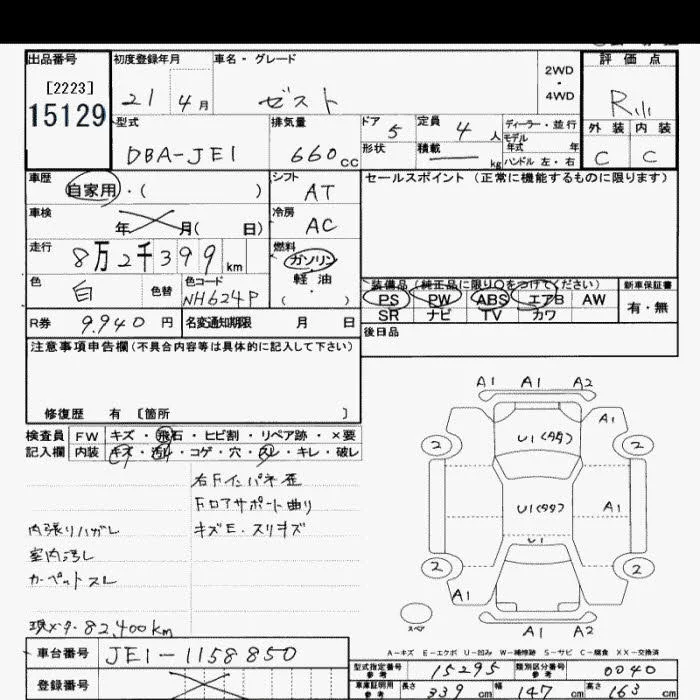 出品番号 初度登録年月 車名・グレード 評価点
[2223] 2WD
15129 21 4月 ゼスト 4WD R小
型式 排気量 ドア 5 定員 4 人 ディーラー・並行 外装 内装
モデル年式 年
DBA-JE1 660cc 形状 積載 kg ハンドル 左・右 C C
車歴 自家用・( ) シフト AT セールスポイント(正常に機能するものに限ります)
車検 年 月( 日) 冷房 AC
走行 8万2千399km 燃料 ガソリン
軽油
・
( )
色 白 色替 色コード NH624P
装備品(純正品に限り○をつけてください) 新車保証書
PS PW ABS エアB AW 有・無
SR ナビ TV カワ
R券 9.940円 名変通知期限 月 日 後日品
注意事項申告欄(不具合内容等は具体的に記入して下さい)
修復歴 有 〔箇所 〕
検査員 FW キズ・飛石・ヒビ割・リペア跡・×要
記入欄 内装 キズ・汚レ・コゲ・穴・スレ・キレ・破レ
右Fインパネ歪
Fロアサポート曲り
内張りハガレ キズE.スリキズ
室内汚レ
カーペットスレ
現メータ 82,400km
A1 A1 A2
A1
2 2
U1(タタ)
U1(タタ) A1
U1
2 2
A1
A1 A2
スペア
A-キズ E-エクボ U-凹み W-補修跡 S-サビ C-腐食 XX-交換済
車台番号 JE1-1158850
型式指定番号 参考 15295 類別区分番号 参考 0040
登録番号
車庫証明用 参考 長さ 339cm 幅 147cm 高さ 163cm